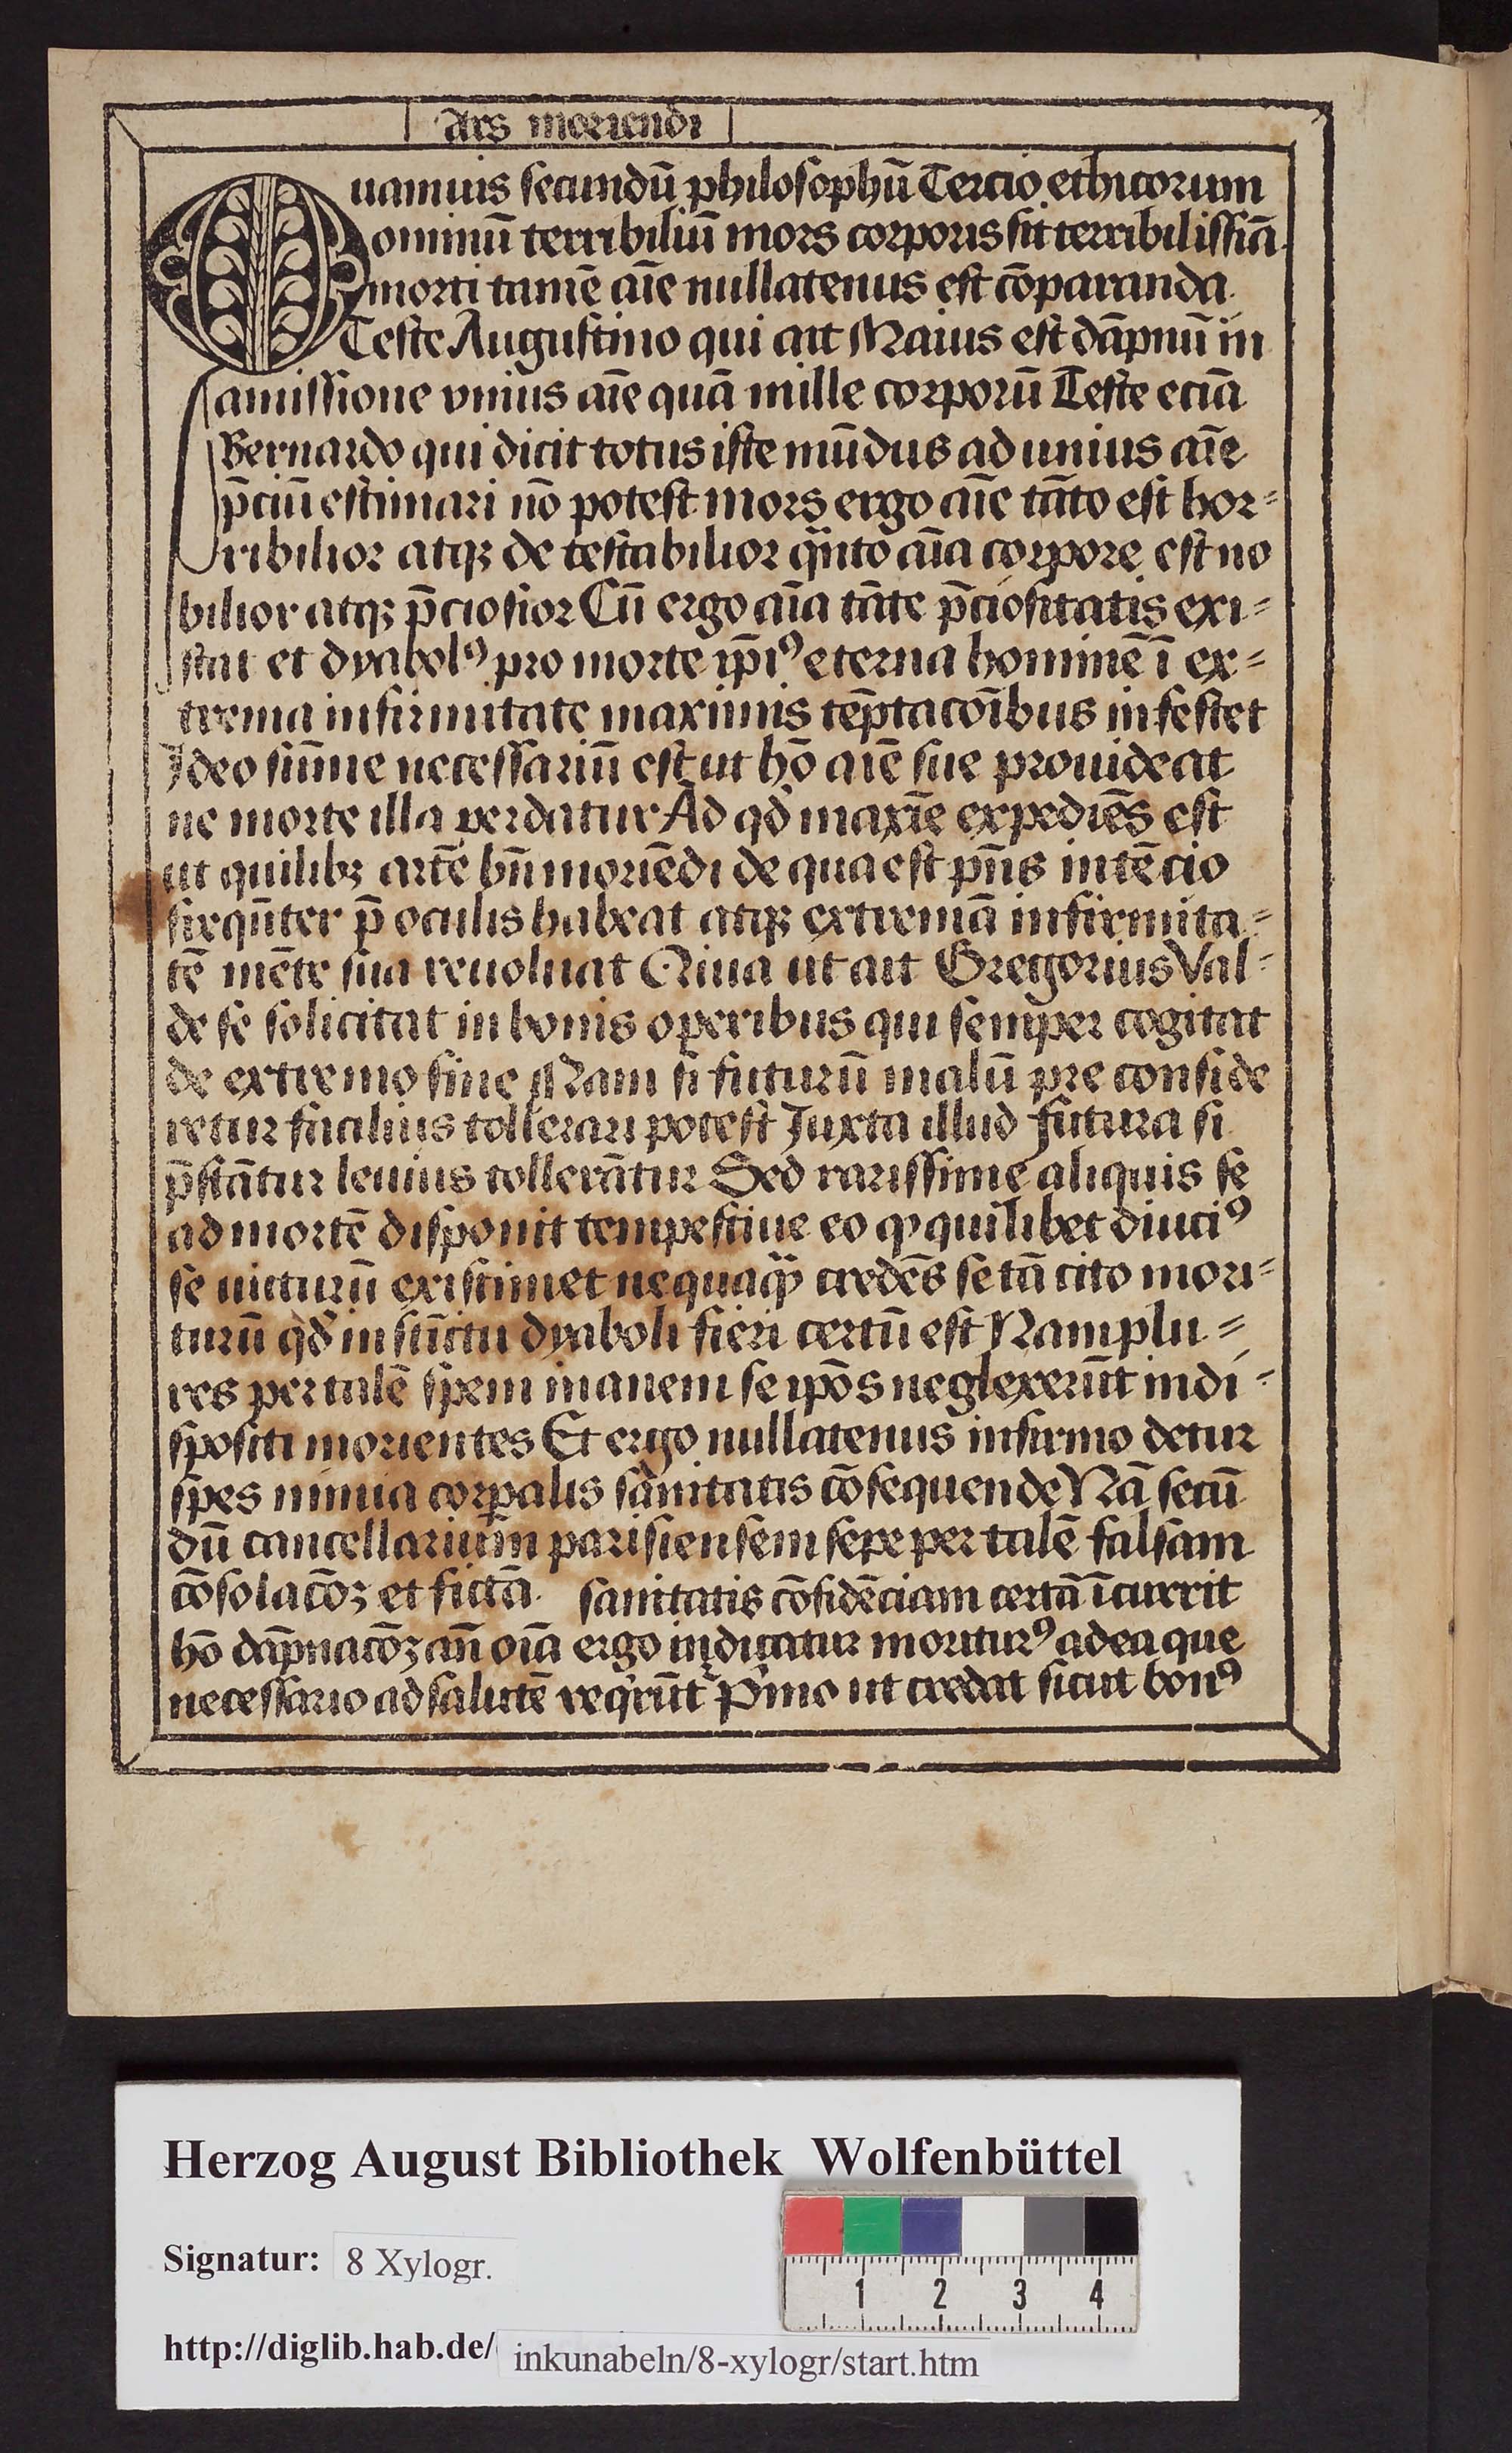 Ars moriendi
Quamuis secundū philosophū Tercio ethicorum
omniū terribiliū mors corporis sit terribilissīa
morti tamē aīe nullatenus est cōparanda
Teste Augustino qui ait Maius est dāpnū in
amissione vnius aīe quā mille corporū Teste eciā
Bernardo qui dicit totus iste mūdus ad unius aīe
p̄ciū estimari nō potest mors ergo aīe tāto est hor⸗
ribilior atqꝫ de testabilior qͣnto aīa corpore est no
bilior atqꝫ p̄ciosior Cū ergo aīa tāte p̄ciositatis exi⸗
stat et dyabolꝰ pro morte ip̄iꝰ eterna hominē ī ex⸗
trema infirmitate maximis tēptacōībus infestet
Ideo sūme necessariū est ut hō aīe sue prouideat
ne morte illa perdatur Ad qd̄ maxīe expediēs est
ut quilibꝫ artē bn̄ moriēdi de qua est pn̄s intēcio
freqūter p̄ oculis habeat atqꝫ extremā infirmita⸗
tē mēte sua reuoluat Quia ut ait Gregorius Val⸗
de se solicitat in bonis operibus qui semper cogitat
de extremo fine Nam si futurū malū pre conside
retur facilius tollerari potest Iuxta illud futura si
p̄stātur leuius tollerātur Sed rarissime aliquis se
ad mortē disponit tempestiue eo ꝙ quilibet diuciꝰ
se uicturū existimet nequaꝙͣ credēs se tā cito mori⸗
turū qd̄ instīctu dyaboli fieri certū est Nam plu⸗
res per talē spem inanem se ipōs neglexerūt indi⸗
spositi morientes Et ergo nullatenus infirmo detur
spes nimia corꝑalis sanitatis cōsequende Nā secū
dū cancellarium parisiensem sepe per talē falsam
cōsolacōꝫ et fictā sanitatis cōfidēciam certā īcurrit
hō dāpnacōꝫ an̄ oīa ergo inducatur moriturꝰ ad ea que
necessario ad salutē reqͥrūt͛ Pͥmo ut credat sicut bonꝰ
Herzog August Bibliothek Wolfenbüttel
Signatur: 8 Xylogr.
1 2 3 4
http://diglib.hab.de/ inkunabeln/8-xylogr/start.htm